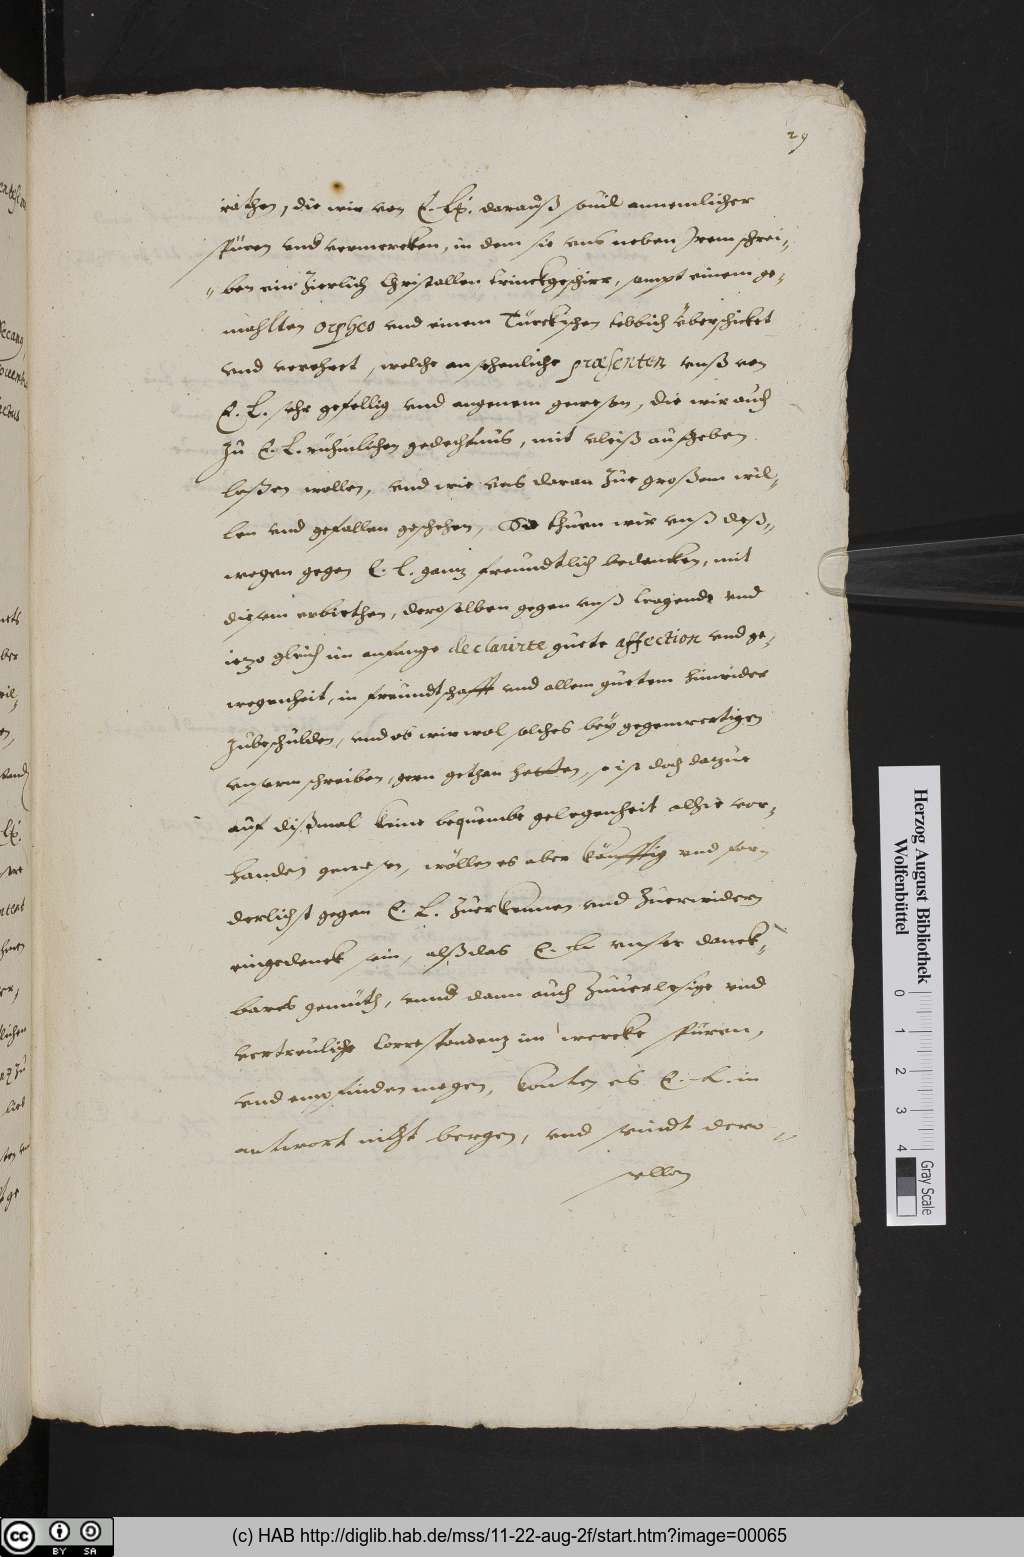 29
rathen, die wir von E. Lb. darauß souil annemlicher
spüren und vermercken, in dem sie uns neben Jrem schrei-
ben ein Zierlich Christallen trinckgeschirr, sampt einem ge-
mahlten Orpheo und einem Türckischen tebbich überschicket
und verehret, welche ansehenliche præsenten unß von
E. L. sehr gefellig und angenem gewesen, die wir auch
zu E. L. rühmlichen gedechtnüs, mit vleiß aufheben
laßen wollen, und wie uns daran zue großem wil-
len und gefallen geschehen, So thuen wir unß deß-
wegen gegen E. L. ganz freundtlich bedancken, mit
diesem erbiethen, deroselben gegen unß tragende und
iezo gleich im anfange declarirte guete affection und ge-
wogenheit, in freundtschafft und allem guetem hinwider
zubeschulden, und ob wir wol solches bey gegenwertigen
unserm schreiben, gern gethan hetten, so ist doch darzue
auf dißmal keine bequembe gelegenheit alhie vor-
handen gewesen, wöllen es aber künfftig und for-
derlichst gegen E. L. zuerkennen und zuerwidern
eingedenck sein, alß das E. L. unser danck-
bares gemüth, unnd dann auch zuuerlesige und
vertreuliche Correspondenz im wercke spüren,
und empfinden mogen, konten es E. L. in
antwort nicht bergen, und seindt dero-
selben
Herzog August Bibliothek
Wolfenbüttel
0 1 2 3 4
Gray Scale
cc BY SA
(c) HAB http://diglib.hab.de/mss/11-22-aug-2f/start.htm?image=00065